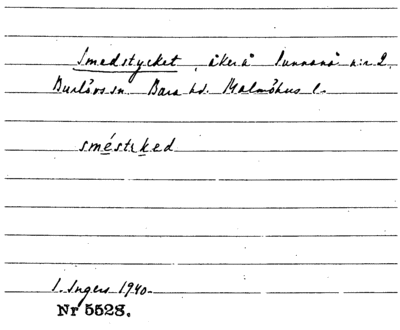 Smedstycket, åker å Sunnanå n:r 2,
Burlövs sn. Bara hd. Malmöhus l.
sméstɩked
I. Ingers 1940.
Nr 5528.